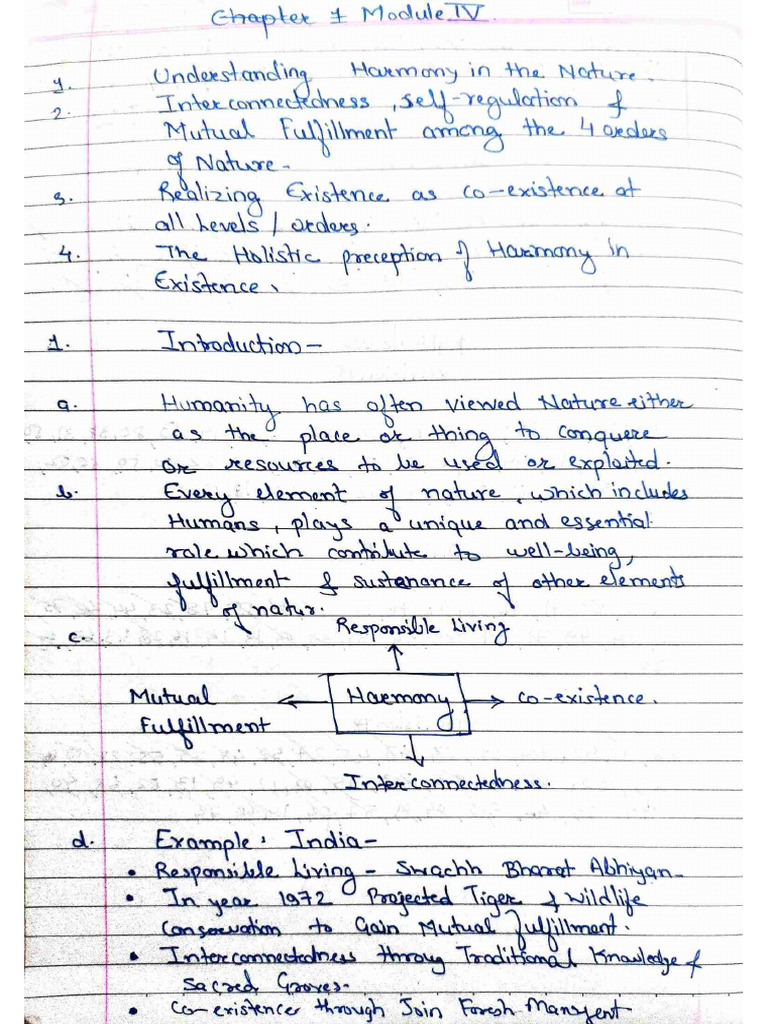 Chapter 1 Module IV.
1. Understanding Harmony in the Nature.
2. Interconnectedness, self-regulation &
Mutual Fulfillment among the 4 orders
of Nature-
3. Realizing Existence as co-existence at
all Levels / orders.
4. The Holistic preception of Harmony in
Existence.
1. Introduction-
a. Humanity has often viewed Nature either
as the place or thing to conquere
or resources to be used or exploited.
b. Every element of nature, which includes
Humans, plays a unique and essential
role which contribute to well-being,
fulfillment & sustenance of other elements
of natur.
c. Responsible Living
Mutual
Fulfillment
Harmony
co-existence.
Interconnectedness.
d. Example, India-
• Responsible Living - Swachh Bharat Abhiyan-
• In year 1972 Projected Tiger & Wildlife
Conservation to Gain Mutual fulfillment.
• Interconnectedness throug Traditional Knowledge &
Sacred Groves.
• Co-existence through Join Foresh Manyent